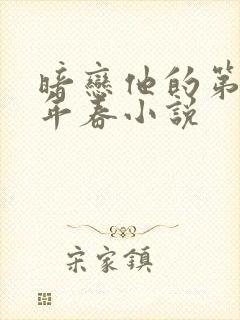 暗戀他的第
年春小說
宋家鎮